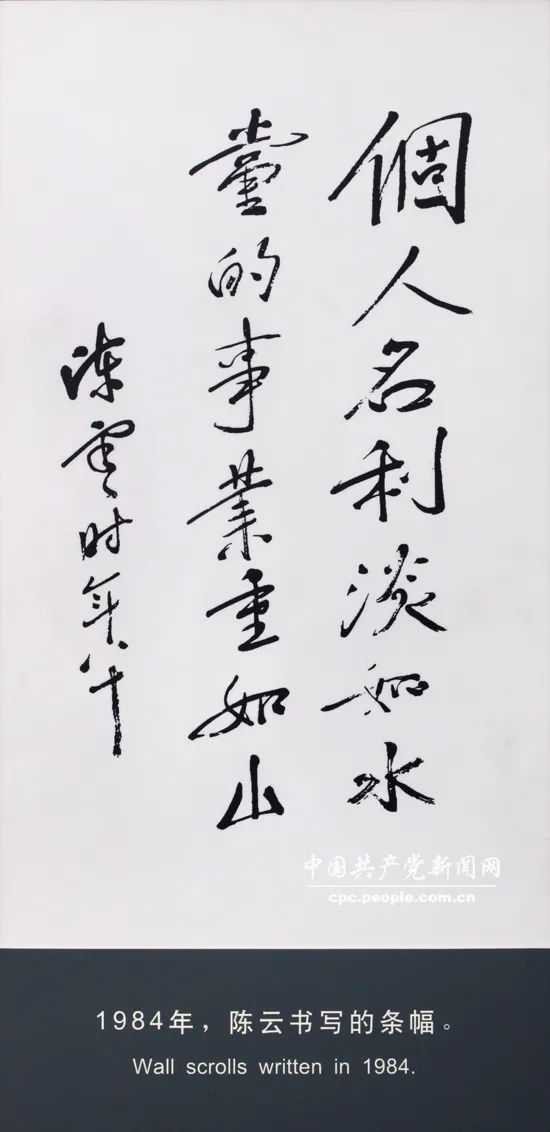 個人名利淡如水
黨的事業重如山
陈雲时年八十
中国共产党新闻网
cpc.people.com.cn
1984年，陈云书写的条幅。
Wall scrolls written in 1984.